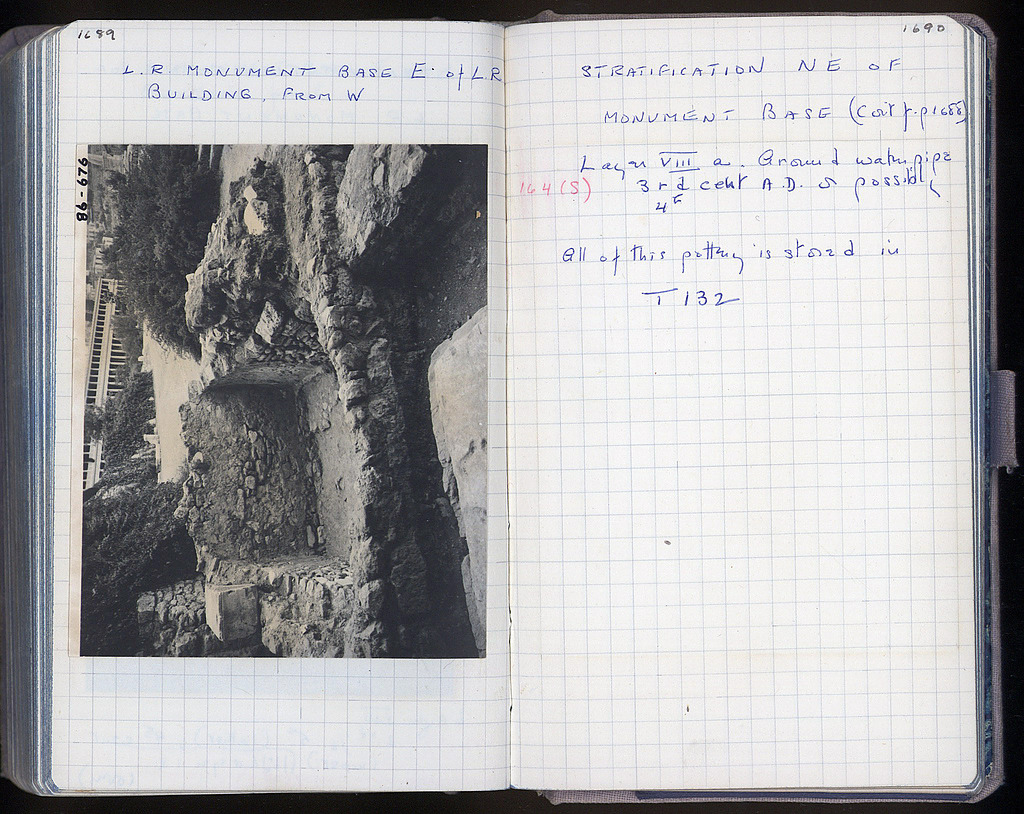 1689
L.R. MONUMENT BASE E. of L.R
BUILDING, FROM W
86-676
1690
STRATIFICATION NE OF
MONUMENT BASE (Con't f. p 1688)
Layer VIII a. Around water pipe
164(S) 3rd cent A.D. & possibly
4th
All of this pottery is stored in
T 132